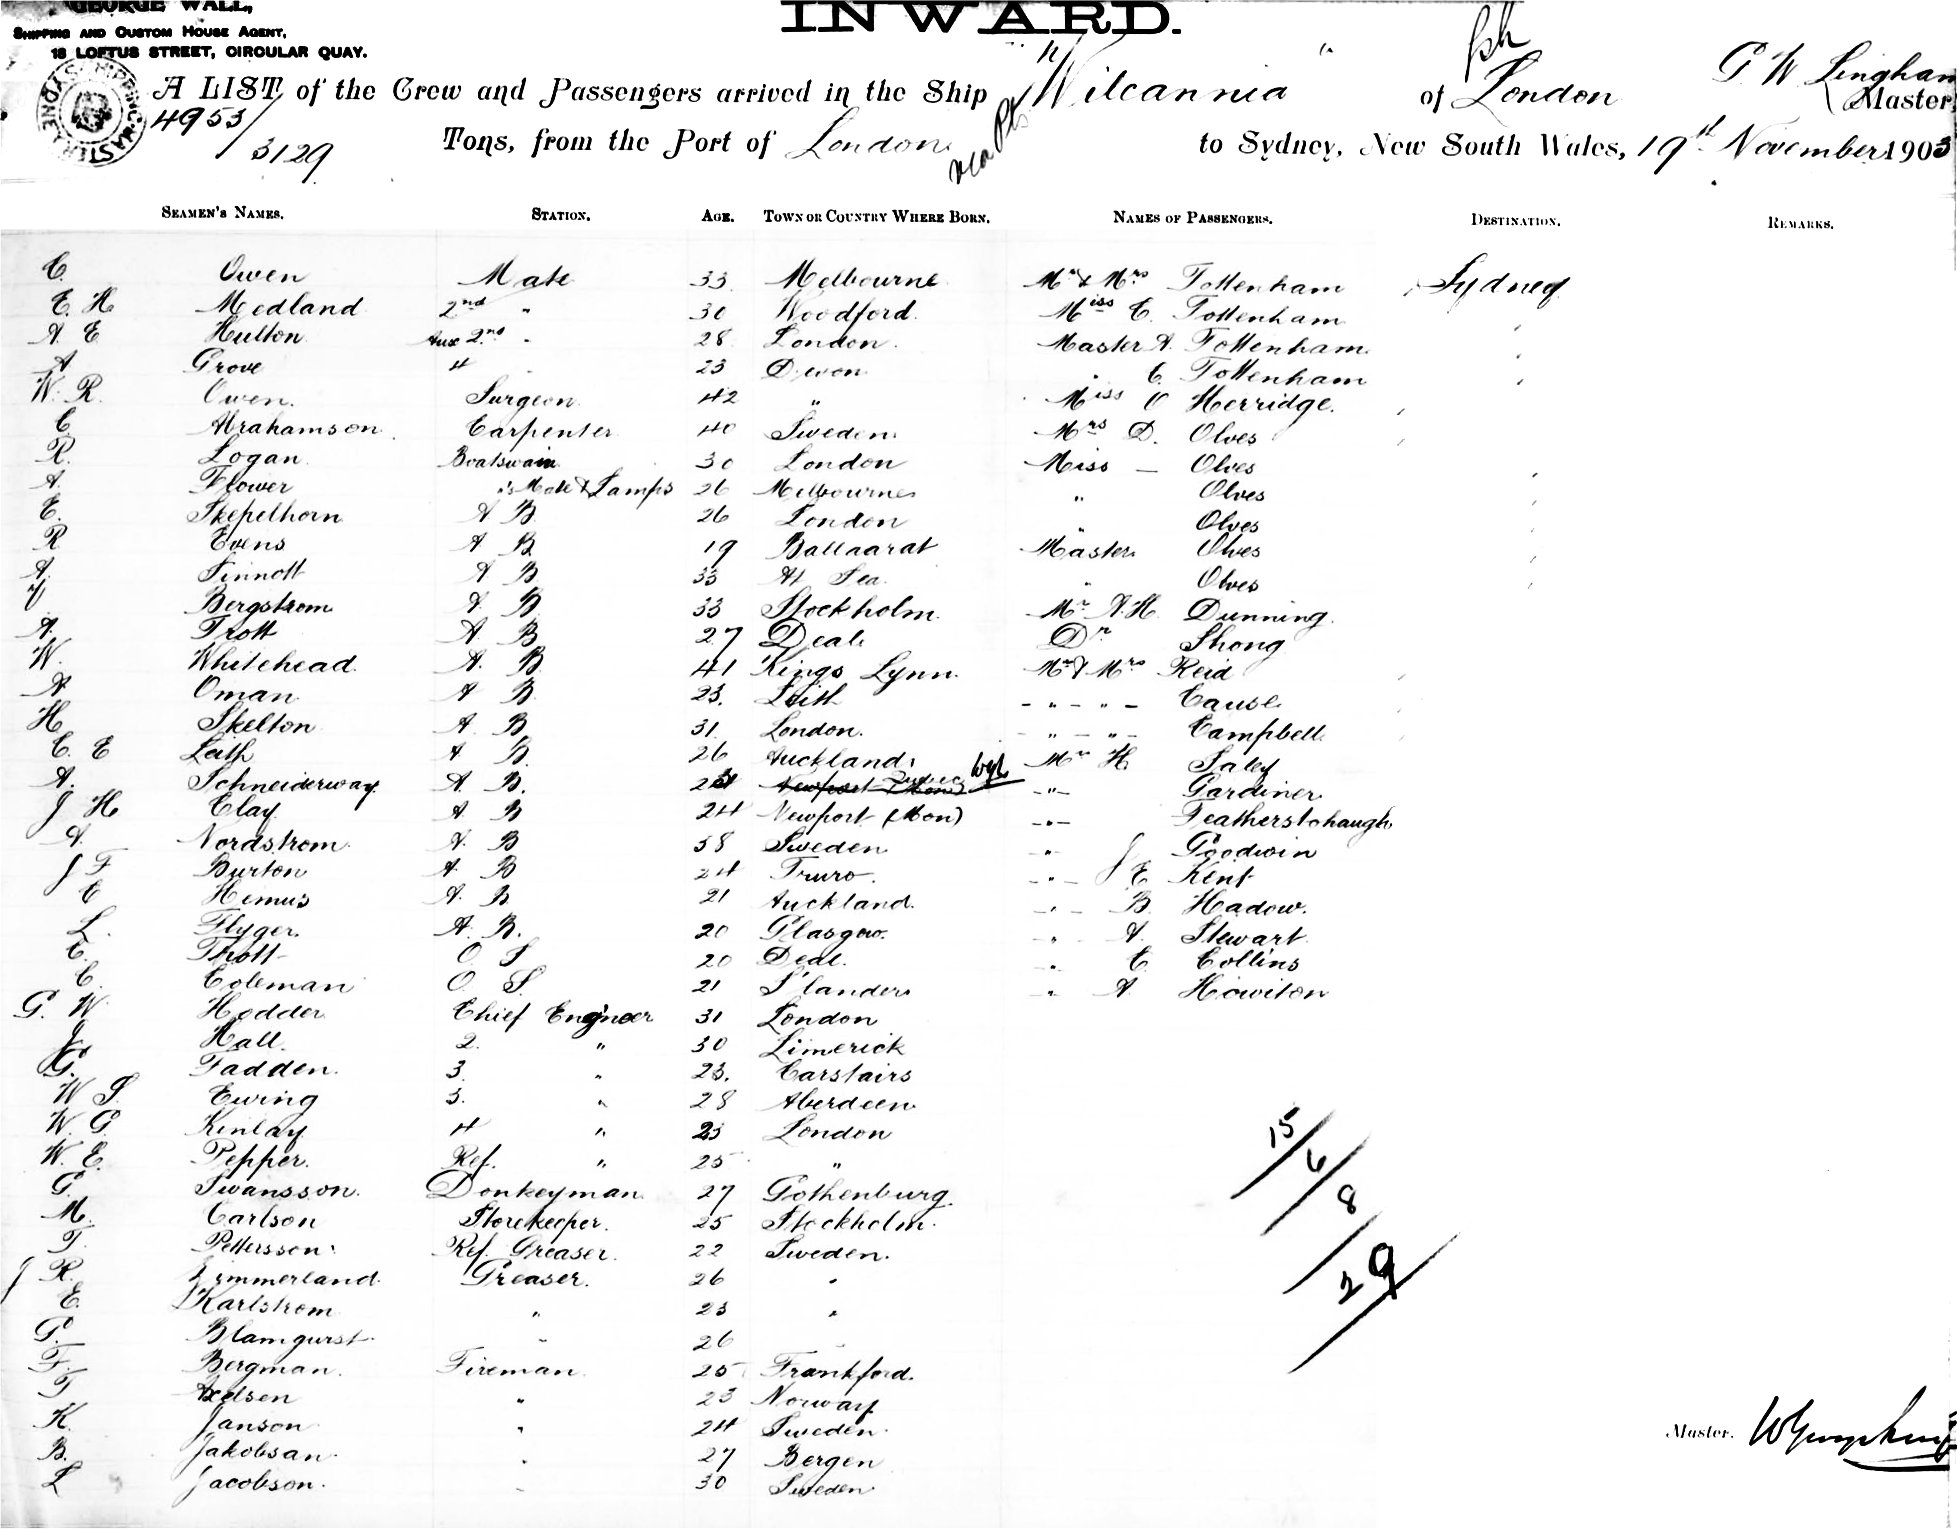 GEORGE WALL,
SHIPPING AND CUSTOM HOUSE AGENT,
18 LOFTUS STREET, CIRCULAR QUAY.
INWARD.
A LIST of the Crew and Passengers arrived in the Ship "Wilcannia" of London G W Lingham Master,
4953/3129 Tons, from the Port of London via Pts to Sydney, New South Wales, 19th November 1903
SEAMEN'S NAMES. STATION. AGE. TOWN OR COUNTRY WHERE BORN. NAMES OF PASSENGERS. DESTINATION. REMARKS.
C. Owen Mate 33 Melbourne Mr & Mrs Tottenham Sydney
E. H Medland 2nd " 30 Woodford Miss C. Tottenham
A E Hutton Aux 2nd " 28 London Master A. Tottenham
A Grove 4 23 Devon " C. Tottenham
W. R. Owen Surgeon 42 " Miss O Herridge.
C Abrahamson Carpenter 40 Sweden Mrs D. Olves
R. Logan Boatswain 30 London Miss — Olves
A. Flower "s Mate & Lamps 26 Melbourne " Olves
E. Skepelhorn A B 26 London " Olves
R Evens A B 19 Ballaarat Master Olves
A. Sinnott A B 33 At Sea " Olves
Bergstrom A. B 33 Stockholm Mr A.H. Dunning
A. Trott A B 27 Deal Dr Shong
W. Whitehead A. B. 41 Kings Lynn. Mr & Mrs Reid
A Oman A B 23. Leith - " - " - Cause
H Skelton A. B 31. London. " - " - Campbell
C. E Leith A B. 26 Auckland Mr H. Saley
A. Schneiderway. A. B. Newport (Mon) -"- Gardiner
J H Clay A B 24 Newport (Mon) -"- Featherstohaugh
A. Nordstrom. A. B 38 Sweden " J Goodwin
J F Burton A. B 24 Truro. -"- E Kent
C Hemus A. B 21 Auckland. -"- B. Hadow.
L. Flyger. A. B. 20 Glasgow. " A. Stewart
C. Trott O S 20 Deal. " C Collins
C. Coleman O S 21 Flanders " A Howiton
G. W. Hodder Chief Engineer 31 London
J. Hall. 2. " 30 Limerick
G. Fadden. 3. " 23. Carstairs
W S. Ewing 3. " 28 Aberdeen
W. G Kinlay 4 " 23 London
W. E. Pepper. Ref. " 25 "
G. Swansson. Donkeyman 27 Gothenburg.
M. Carlson Storekeeper. 25 Stockholm.
T. Pettersson Ref. Greaser. 22 Sweden.
J R. Zimmerland. Greaser. 26 "
E. Karlstrom " 23 "
G. Blamqurst. " 26 "
F. Bergman. Fireman 25 Frankford.
T Axelsen " 23 Norway
K. Janson " 24 Sweden.
B. Jakobsan. " 27 Bergen
L Jacobson. " 30 Sweden
15/6/8/29
Master.